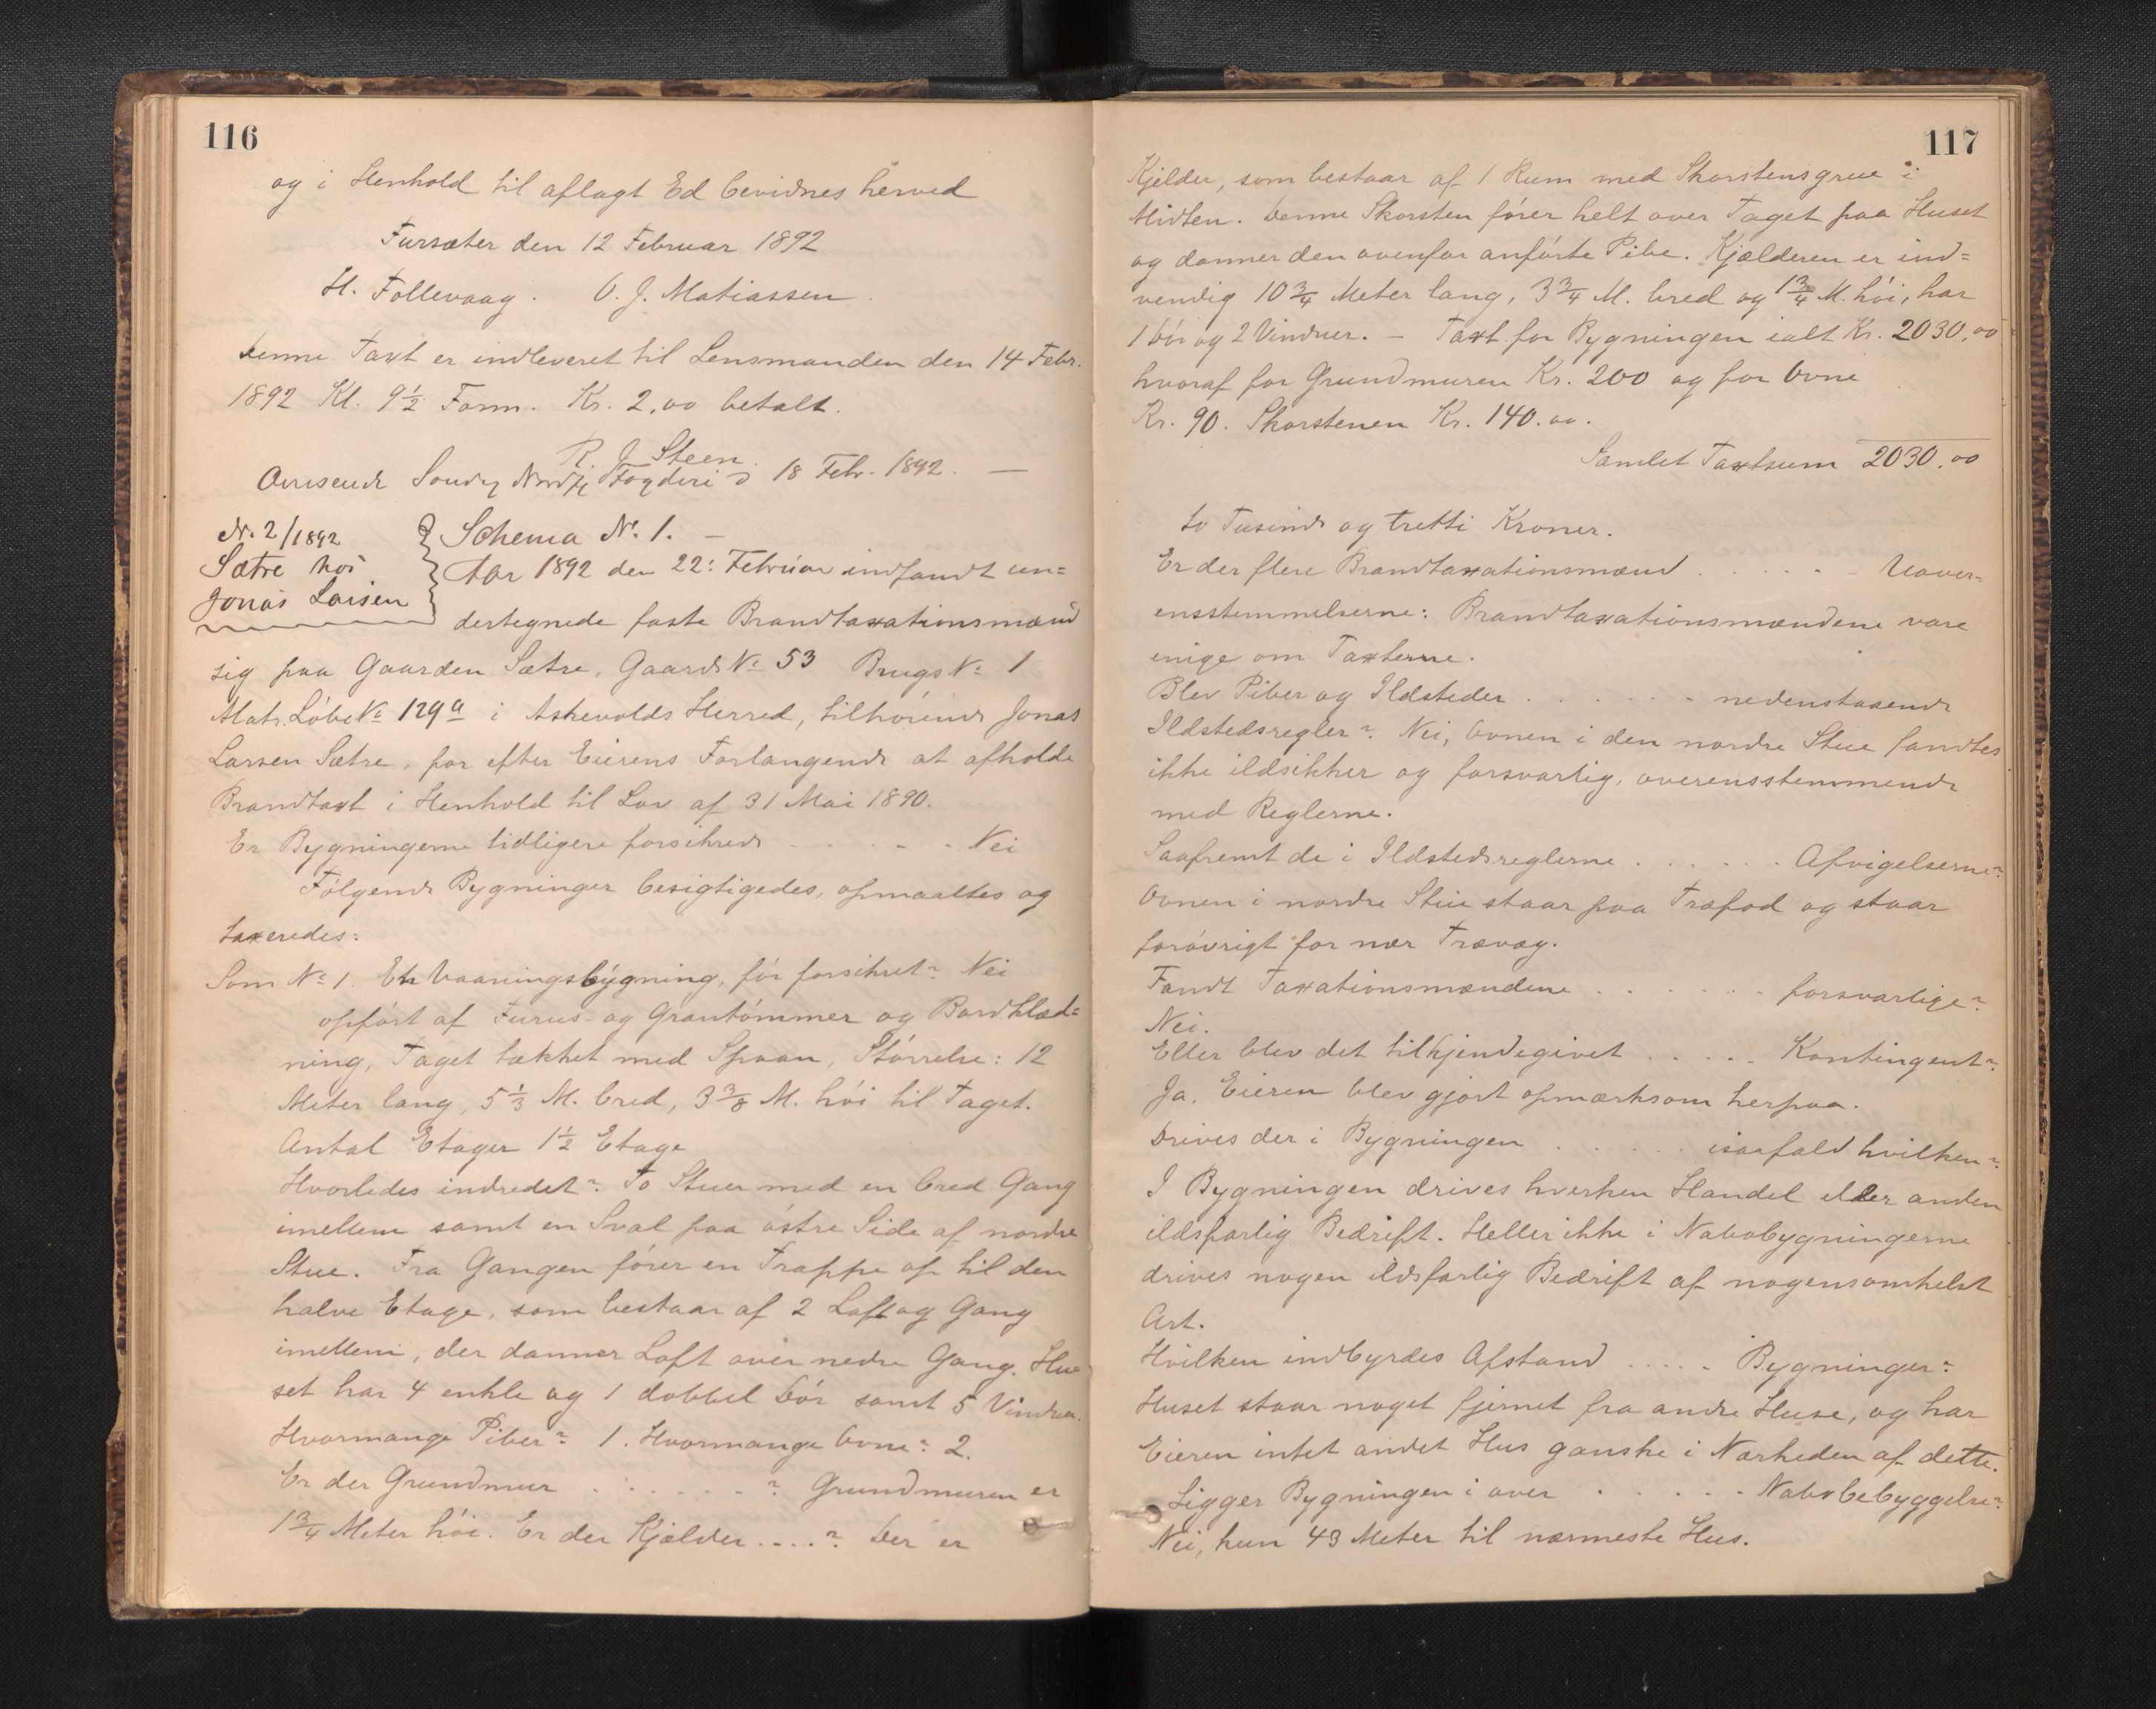 116
og i Henhold til aflagt Ed bevidnes herved
Fursæter den 12 Februar 1892
H. Follevaag. O. J. Matiassen.
Denne Taxt er indleveret til Lensmanden den 14 Febr.
1892 Kl. 9½ Form. Kr. 2,00 betalt.
R. J. Steen.
Fogderi 18 Febr. 1892. —
Nr. 2/1892
Sætre hos
Jonas Larsen
Schema No. 1. —
Aar 1892 den 22: Februar indfandt un=
dertegnede faste Brandtaxationsmænd
sig paa Gaarden Sætre, Gaards No 53 Brugs No 1
Matr. Løbe No 129a i Askevolds Herred, tilhørende Jonas
Larsen Sætre, for efter Eierens Forlangende at afholde
Brandtaxt i Henhold til Lov af 31 Mai 1890.
Er Bygningerne tidligere forsikrede . . . . . . Nei
Følgende Bygninger besigtigedes, opmaaltes og
taxeredes:
Som No 1. En Vaaningsbygning, før forsikret? Nei
opført af Furus- og Grantømmer og Bordklæd=
ning, Taget tækket med Spaan, Størrelse: 12
Meter lang, 5⅓ M. bred, 3⅜ M. høi til Taget.
Antal Etager 1½ Etage
Hvorledes indredet? To Stuer med en bred Gang
imellem samt en Sval paa østre Side af nordre
Stue. Fra Gangen fører en Trappe op til den
halve Etage, som bestaar af 2 Loft og Gang
imellem, der danner Loft over nedre Gang. Hu
set har 4 enkle og 1 dobbel Dør samt 5 Vinduer.
Hvormange Piber? 1. Hvormange Ovne? 2.
Er der Grundmur . . . . . . ? Grundmuren er
1¾ Meter høi. Er der Kjelder . . . . ? Der er
117
Kjelder, som bestaar af 1 Rum med Skorstensgrue i
Midten. Denne Skorsten fører helt over Taget paa Huset
og danner den ovenfor anførte Pibe. Kjælderen er ind=
vendig 10¾ Meter lang, 3¾ M. bred og 1¾ M. høi, har
1 Dør og 2 Vinduer. — Taxt for Bygningen ialt Kr. 2030,00
hvoraf for Grundmuren Kr. 200 og for Ovne
Kr. 90. Skorstenen Kr. 140.00.
Samlet Taxtsum 2030.00
to Tusinde og tretti Kroner.
Er der flere Brandtaxationsmænd . . . . . . Uover=
ensstemmelserne: Brandtaxationsmændene vare
enige om Taxterne.
Blev Piber og Ildsteder . . . . . . nedenstaaende
Ildstedsregler? Nei, Ovnen i den nordre Stue fandtes
ikke ildsikker og forsvarlig, overensstemmende
med Reglerne.
Saafremt de i Ildstedsreglerne . . . . . . Afvigelserne?
Ovnen i nordre Stue staar paa Træfod og staar
forøvrigt for nær Trævæg.
Fandt Taxationsmændene . . . . . . forsvarlige?
Nei.
Eller blev det tilkjendegivet . . . . . Kontingent?
Ja, Eieren blev gjort opmærksom herpaa.
Drives der i Bygningen . . . . . isaafald hvilken?
I Bygningen drives hverken Handel eller anden
ildsfarlig Bedrift. Heller ikke i Nabobygningerne
drives nogen ildsfarlig Bedrift af nogensomhelst
Art.
Hvilken indbyrdes Afstand . . . . . Bygninger?
Huset staar noget fjernet fra andre Huse, og har
Eieren intet andet Hus ganske i Nærheden af dette.
Ligger Bygningen i over . . . . . Nabobebyggelse?
Nei, kun 43 Meter til nærmeste Hus.